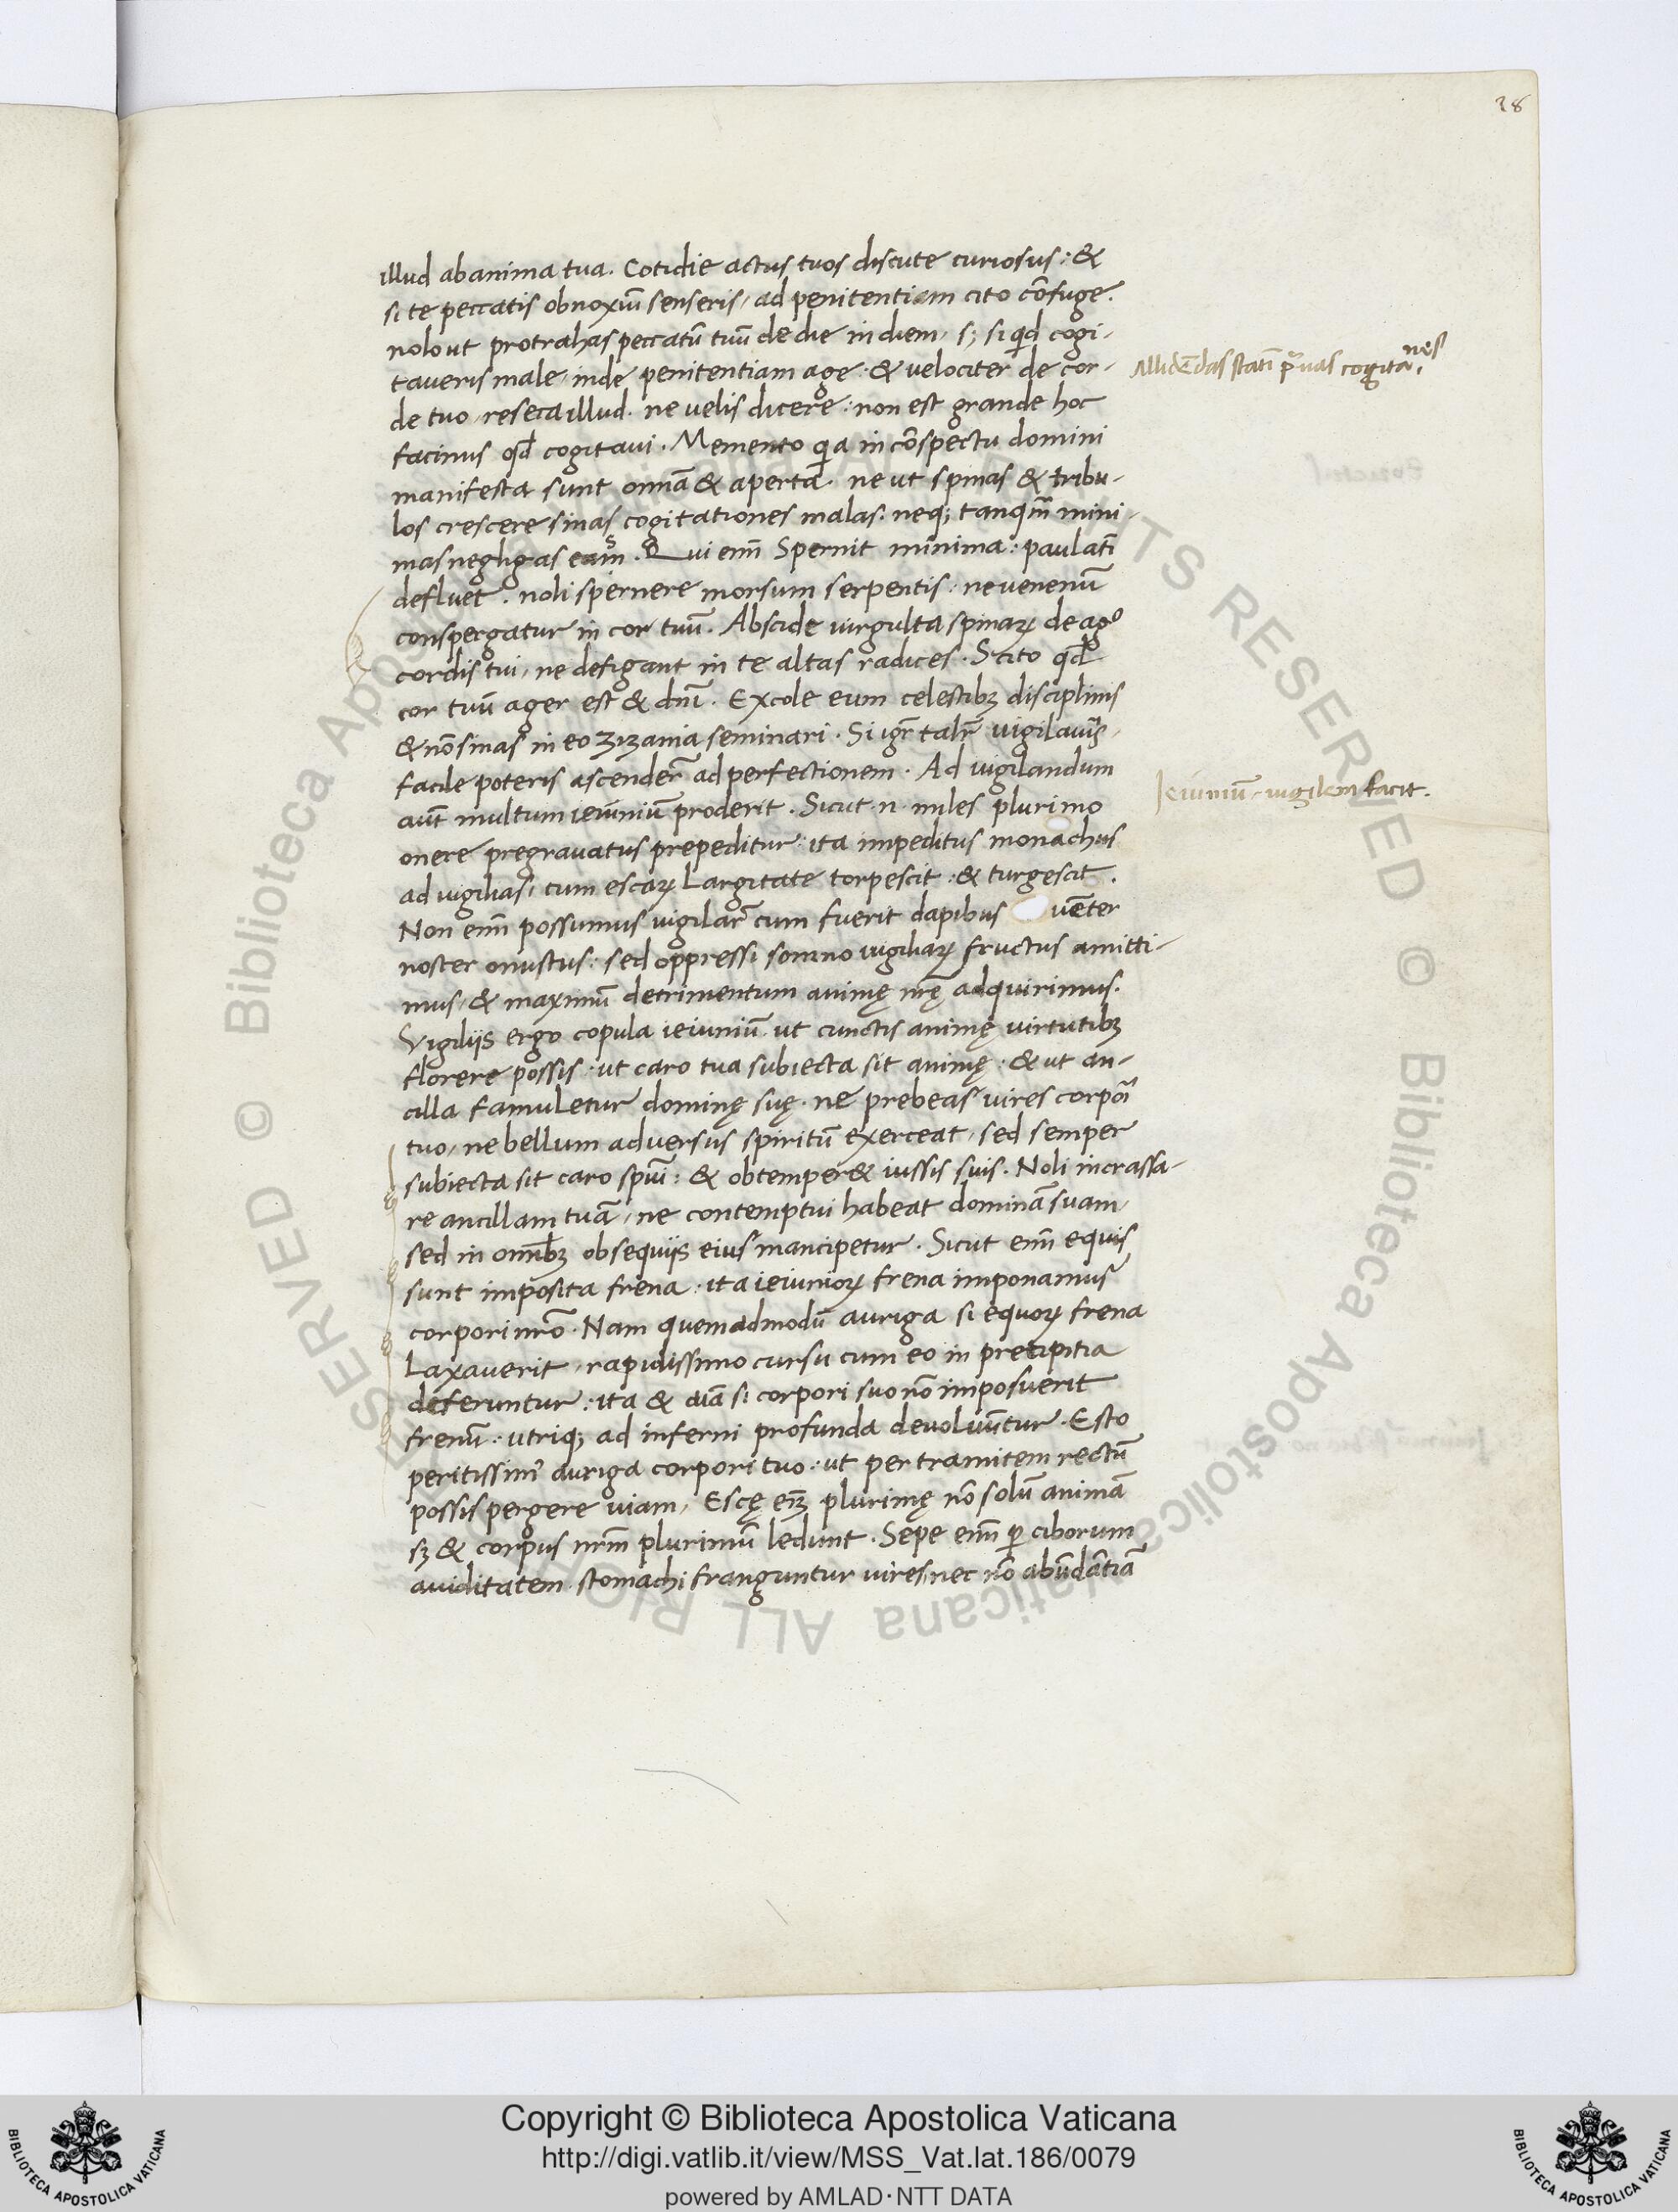 38
illud ab anima tua. Cotidie actus tuos discute curiosus: &
si te peccatis obnoxiũ senseris, ad penitentiam cito cõfuge.
nolo ut protrahas peccatũ tuũ de die in diem, s; si qid cogi-
taveris male, inde penitentiam age. & velociter de cor-
de tuo, reseca illud. ne velis dicere: non est grande hoc
facinus qd cogitavi. Memento qia in cõspectu domini
manifesta sunt omĩa & aperta. ne ut spinas & tribu-
los crescere sinas cogitationes malas. neq; tanqm̃ mini-
mas negligas eam. Qui enĩ Spernit minima: paulatĩ
defluet. noli spernere morsum serpentis: ne venenũ
conspergatur in cor tuũ. Abscide virgulta spinaꝝ de agº
cordis tui, ne defigant in te altas radices. Scito qd
cor tuũ ager est & dnĩ. Excole eum celestibꝫ disciplinis
& nõ sinas in eo zizania seminari. Si igr̃ talr̃ vigilaveris,
facile poteris ascender̃ ad perfectionem. Ad vigilandum
aut̃ multum ieiuniũ proderit. Sicut .n. miles plurimo
onere pregravatus prepeditur: ita impeditus monachus
ad vigilias, cum escaꝝ Largitate torpescit: & turgescit.
Non enĩ possumus vigilar̃ cum fuerit dapibus vẽter
noster onustus: sed oppressi somno vigiliaꝝ fructus amitti-
mus, & maximũ detrimentum animę nrę̃ adquirimus.
Vigiliis ergo copula ieiuniũ ut cunctis animę virtutibꝫ
florere possis. ut caro tua subiecta sit animę: & ut an-
cilla famuletur dominę suę. ne prebeas vires corpori
tuo, ne bellum adversus spiritũ exerceat, sed semper
subiecta sit caro spũi: & obtemper& iussis suis. Noli incrassa-
re ancillam tuã, ne contemptui habeat dominã suam,
sed in omĩbꝫ obsequiis eius mancipetur. Sicut enĩ equis
sunt imposita frena. ita ieiunioꝝ frena imponamus
corpori nrõ. Nam quemadmodũ auriga si equoꝝ frena
Laxaverit, rapidissimo cursu cum eo in precipitia
deferuntur: ita & aĩa si corpori suo nõ imposuerit
frenũ: utriq; ad inferni profunda devolvũtur. Esto
peritissimꝰ auriga corpori tuo: ut per tramitem rectũ
possis pergere viam, Escę enĩ plurimę nõ solũ animã
sꝫ & corpus nrm̃ plurimũ ledunt. Sepe enĩ p̱ ciborum
aviditatem stomachi franguntur vires, nec nõ abũdãtiã
Allidẽdas statĩ pravas cogitanes.
Ieiuniũ vigilem facit.
Copyright © Biblioteca Apostolica Vaticana
http://digi.vatlib.it/view/MSS_Vat.lat.186/0079
powered by AMLAD·NTT DATA
BIBLIOTECA APOSTOLICA VATICANA
BIBLIOTECA APOSTOLICA VATICANA